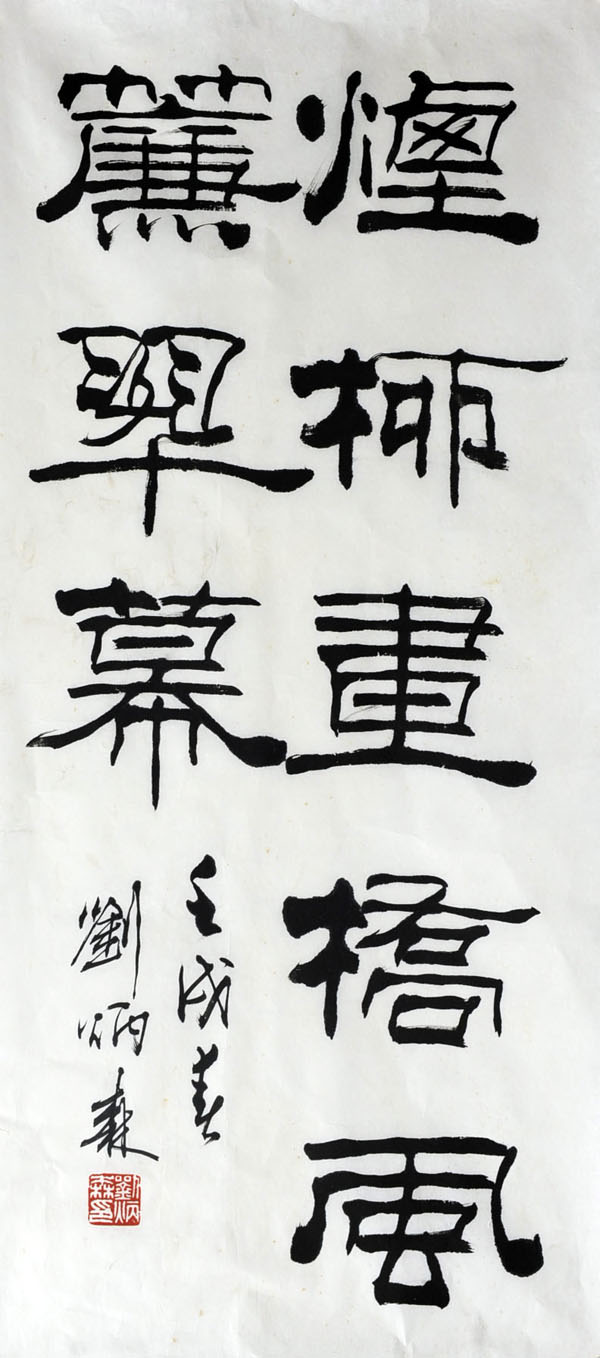 煙柳畫橋風
簾翠幕
壬戌春
劉炳森
劉炳森印